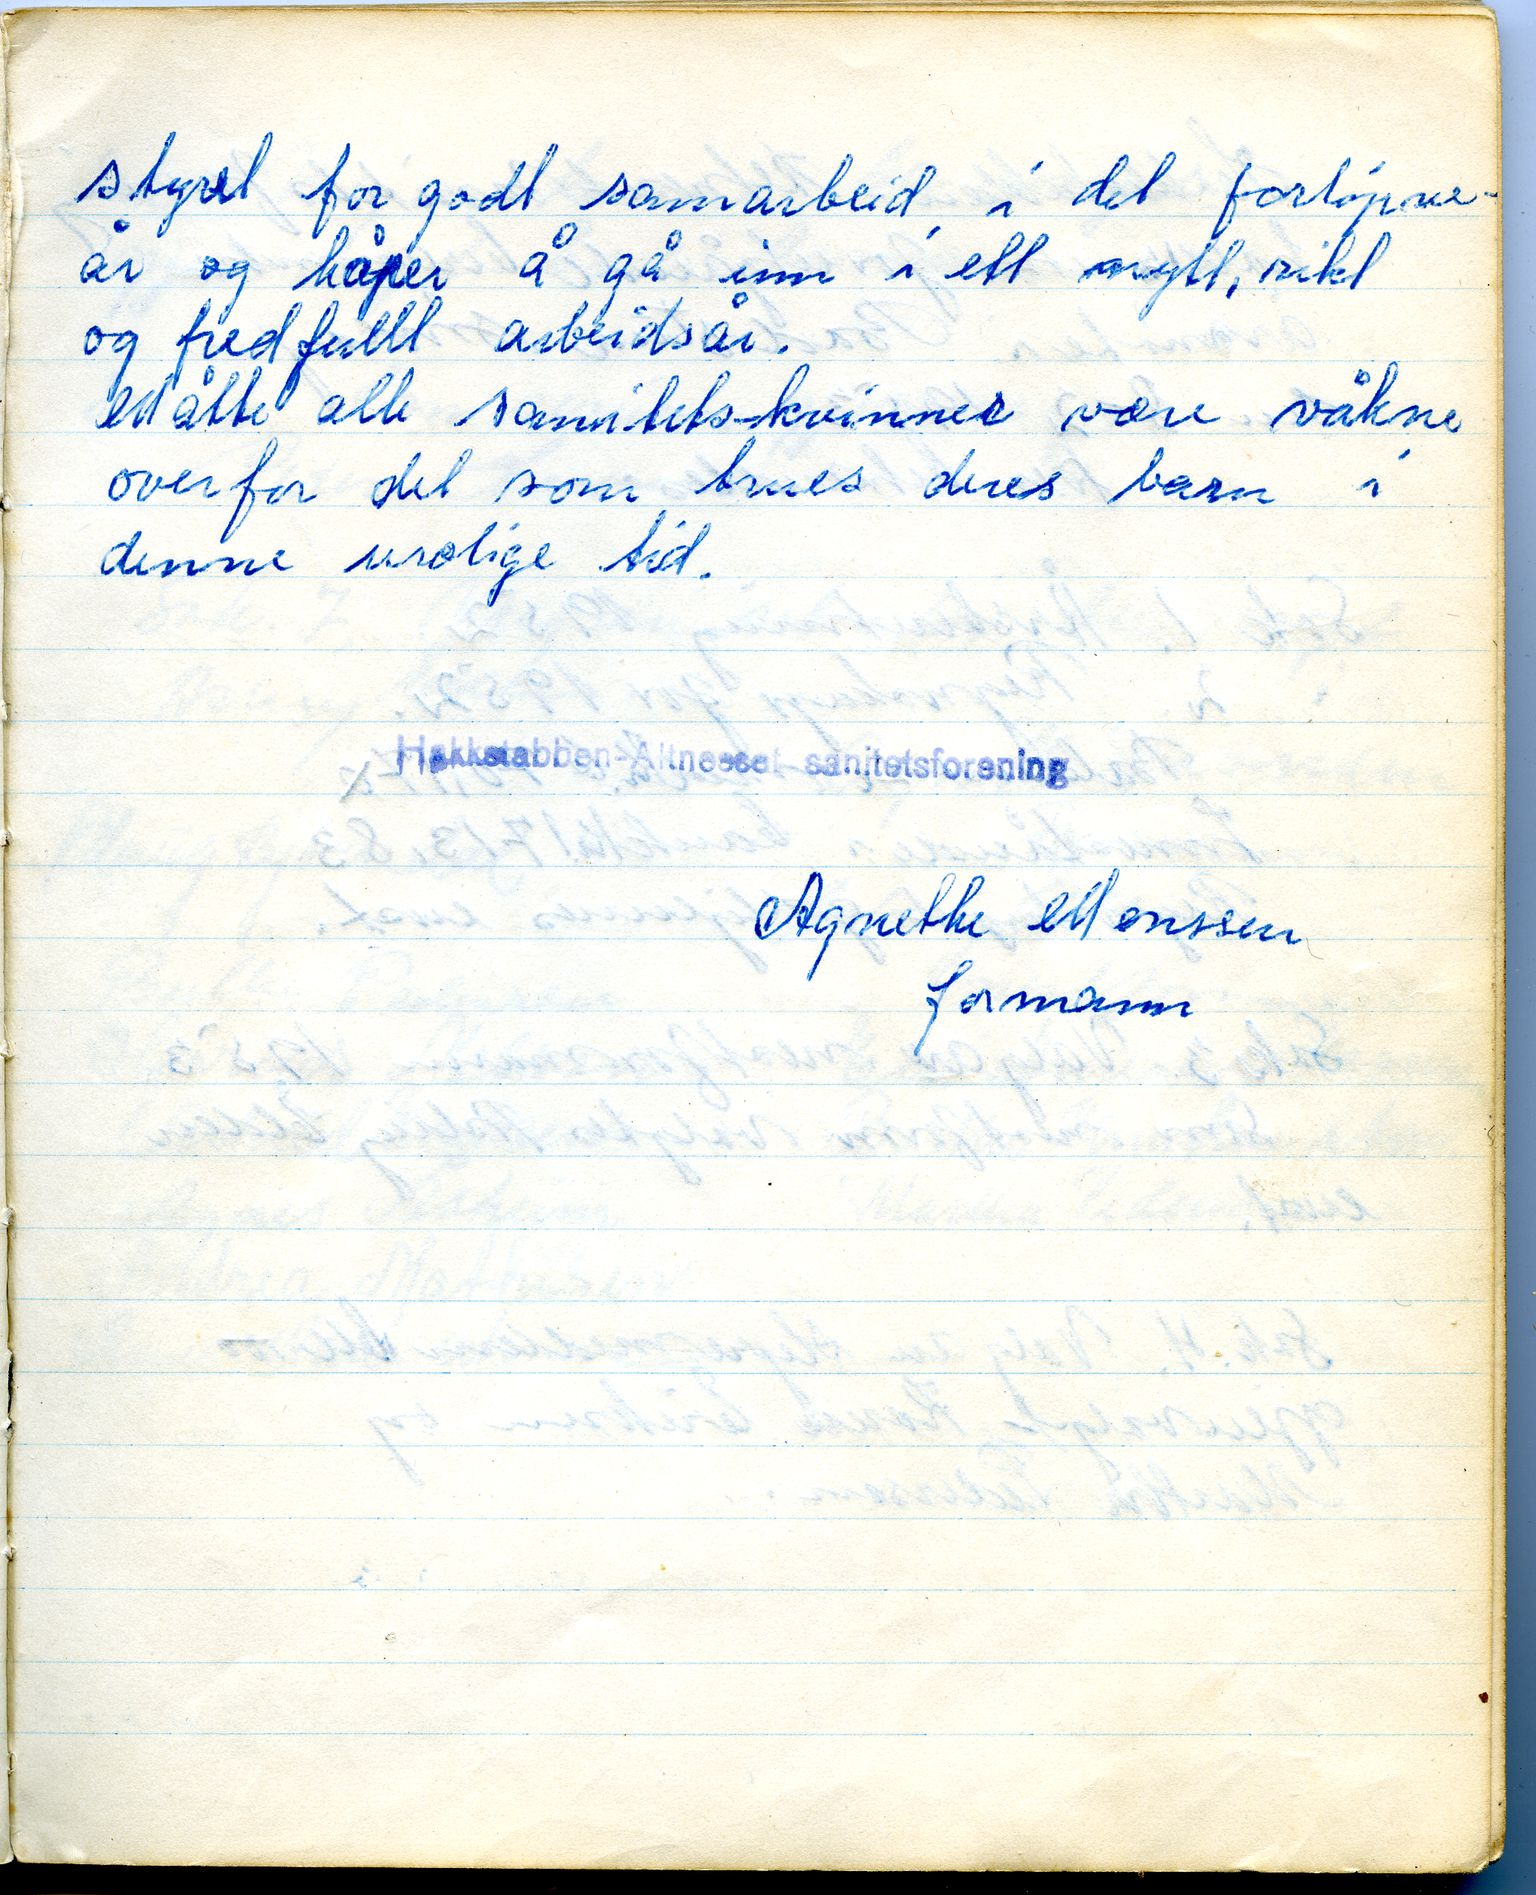 styret for godt samarbeid i det forløpne
år og håper å gå inn i ett nytt, rikt
og fredfullt arbeidsår.
Måtte alle sanitets-kvinner være våkne
overfor det som trues deres barn i
denne urolige tid.
Hakkstabben-Altneset sanitetsforening
Agnethe Monssen
formann